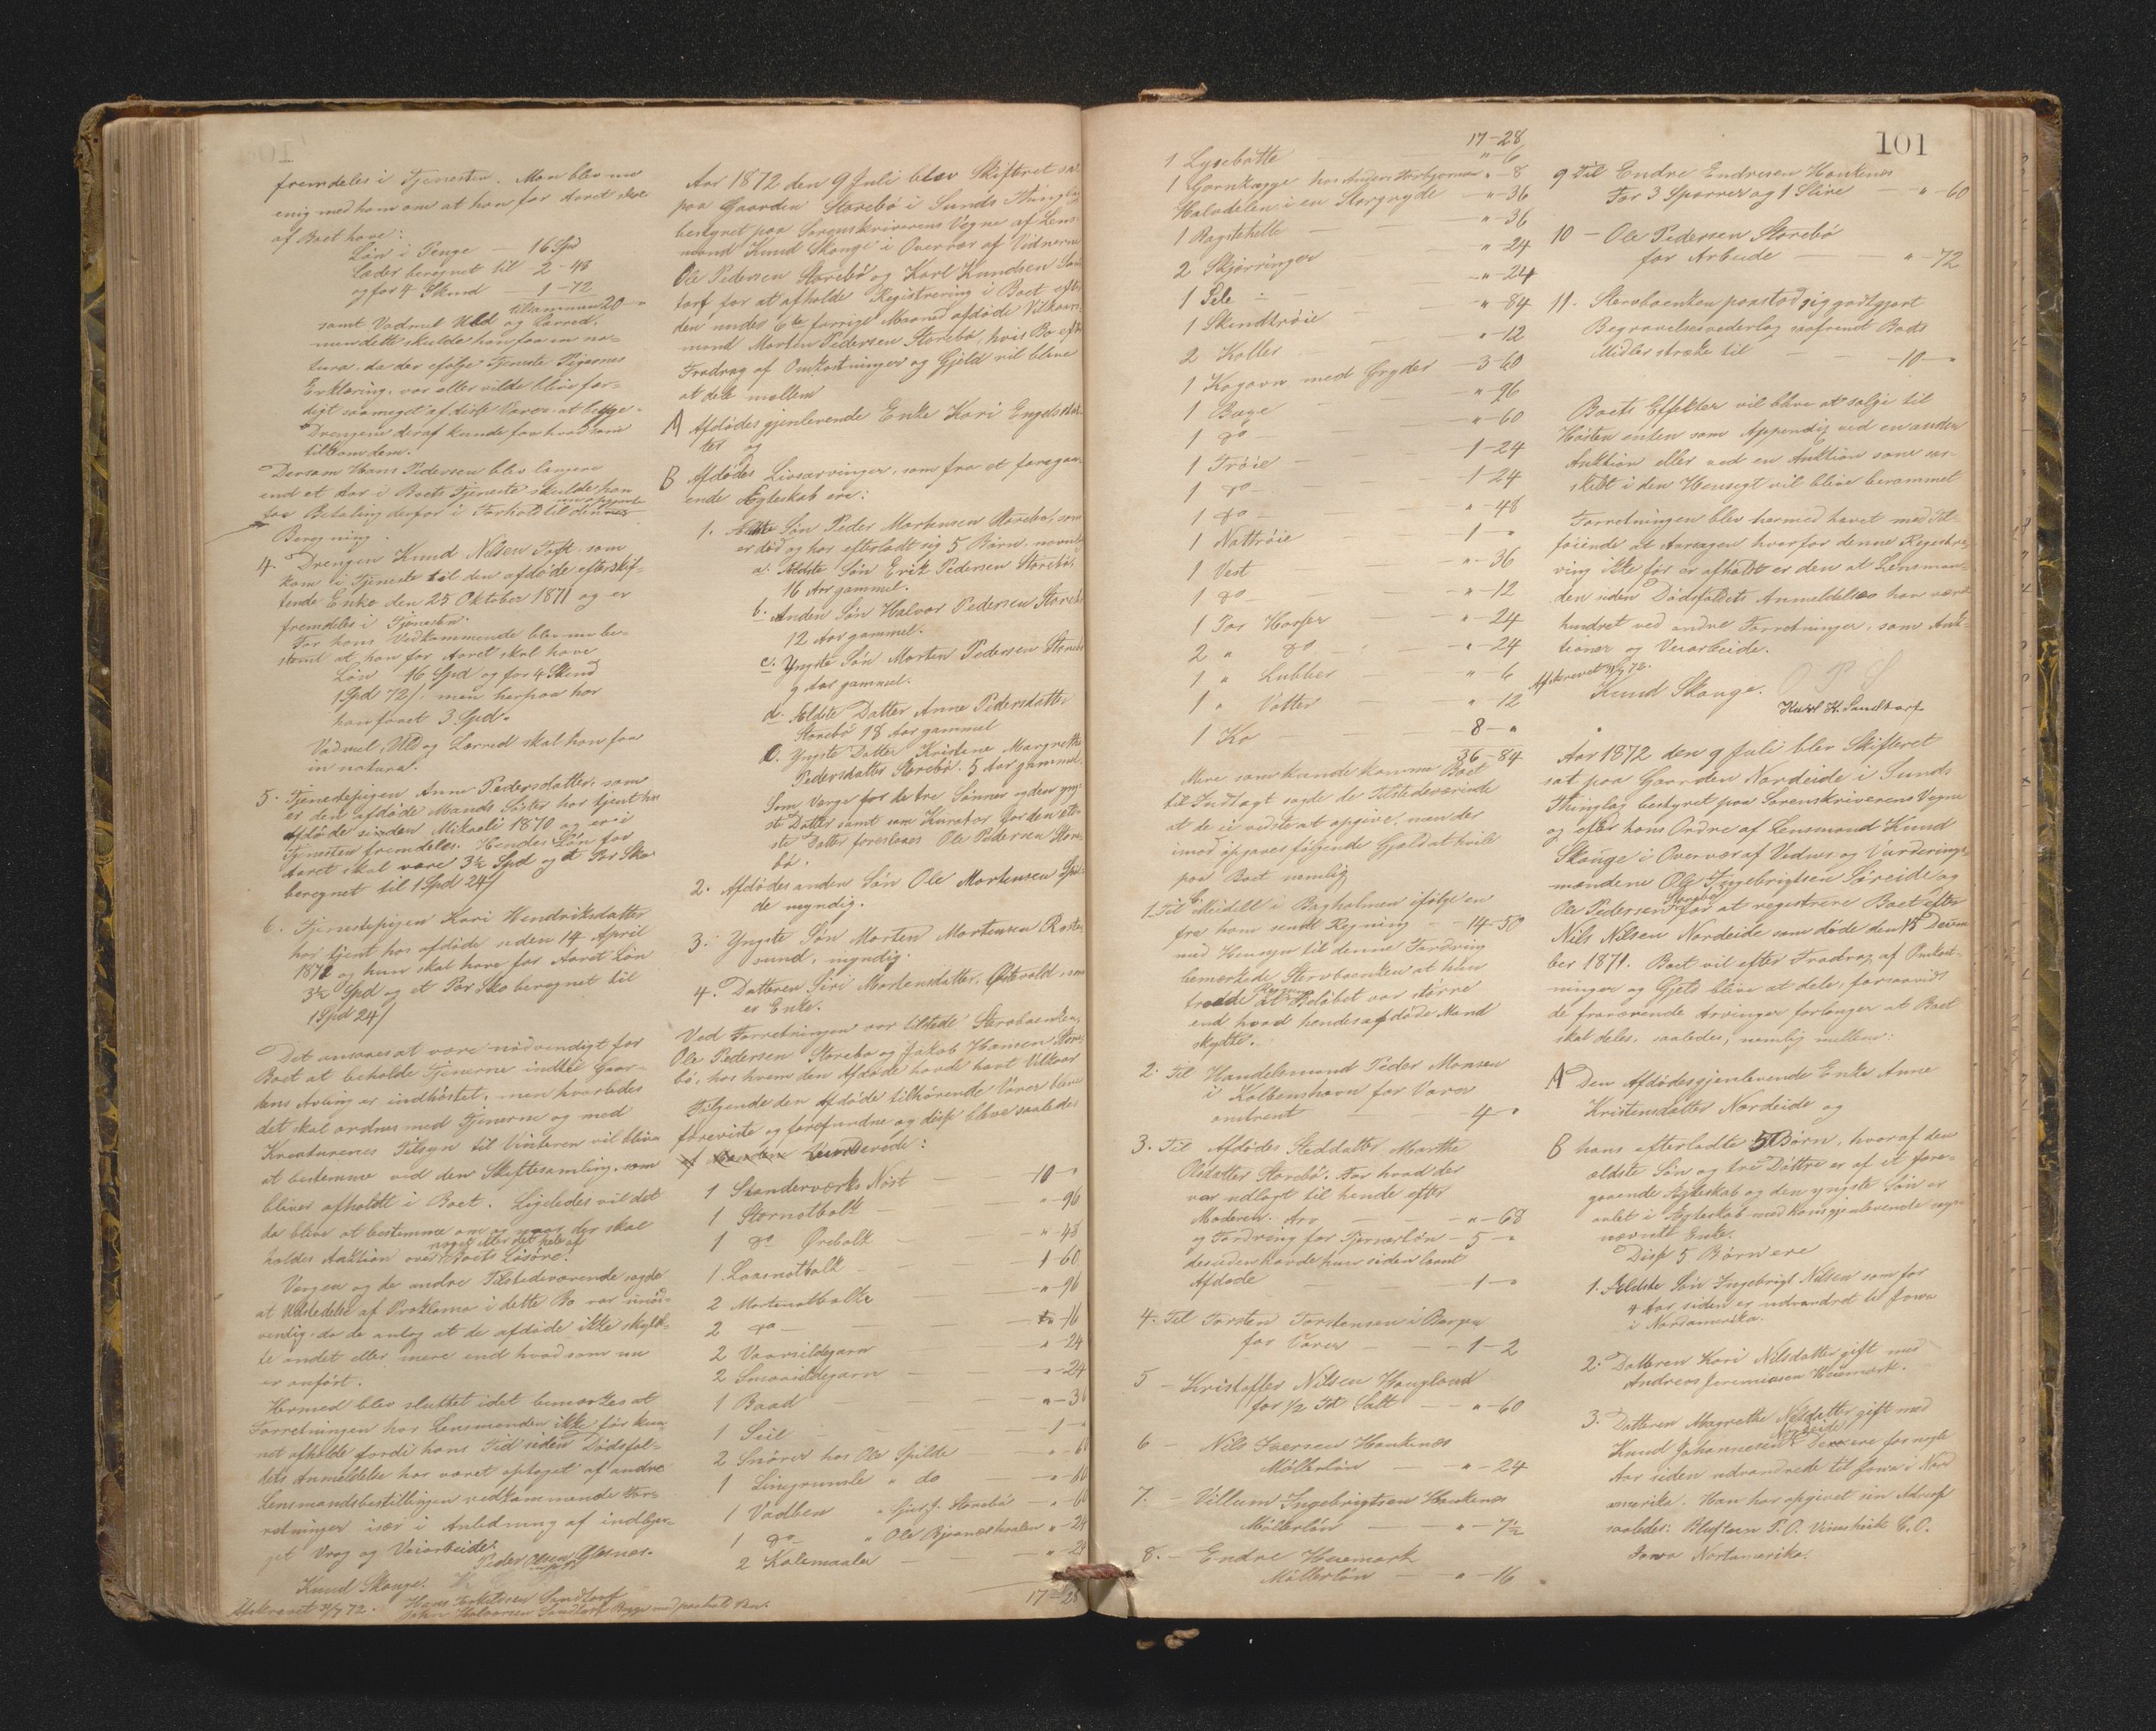 fremdeles i Tjenesten. Man blev nu
enig med ham om at han for Aaret skal
af Boet have:
Løn i Penge — 16 Spd
Læder beregnet til 2-48
og for 4 Skind 1-72
tilsammen 20 - "
samt Vadmel Uld og Lærred,
men dette skulde han faa in na-
tura, da der efølge Tjeneste Pigernes
Erklæring, var eller vilde blive fær-
digt saameget af disse Varer at begge
Drengene deraf kunde faa hvad som
tilkom dem.
Dersom Hans Pedersen blev længere
end et Aar i Boets Tjeneste skulde han
faa Betaling derfor i Forhold til den
Beregning.
4. Drengen Knud Nilsen Toft, som
kom i Tjeneste til den afdøde efterskif-
tende Enke den 25 Oktober 1871 og er
fremdeles i Tjenesten.
For hans Vedkommende blev nu be-
stemt at han for Aaret skal have
Løn 16 Spd og for 4 Skind
1 Spd 72 /. men herpaa har
han faaet 3 Spd.
Vadmel, Uld og Lærred skal han faa
in natura.
5. Tjenestepigen Anne Pedersdatter, som
er den afdøde Mands Søster har tjent hos
Afdøde siden Mikaeli 1870 og er i
Tjenesten fremdeles. Hendes Løn for
Aaret skal være 3½ Spd og et Par Sko
beregnet til 1 Spd 24 /
6. Tjenestepigen Kari Hendriksdatter
har tjent hos afdøde siden 14 April
1872 og hun skal have for Aaret Løn
3½ Spd og et Par Sko beregnet til
1 Spd 24 /
Det ansaaes at være nødvendigt for
Boet at beholde Tjenerne indtil Gaar-
dens Avling er indhøstet, men hvorledes
det skal ordnes med Tjenerne og med
Kreaturenes Tilsyn til Vinteren vil blive
at bestemme ved den Skiftesamling, som
bliver afholdt i Boet. Ligeledes vil det
da blive at bestemme om og naar der skal
noget eller det hele af
holdes Auktion over Boets Løsøre.
Vergen og de andre Tilstedeværende sagde
at Udstedelse af Proklama i dette Bo var unød-
vendig, da de antog at de afdøde ikke skyld-
te andet eller mere end hvad som nu
er anført.
Hermed blev sluttet idet bemærkes at
Forretningen har Lensmanden ikke før kun-
net afholde fordi hans Tid siden Dødsfal-
dets Anmeldelse har været optaget af andre
Lensmandsbestillingen vedkommende For-
retninger især i Anledning af indbjer-
get Vrag og Veiarbeide.
Peder Olsen Glesnes.
Knud Skauge.
Hans Sandtorf
Afskrevet 31/7 72. John Halvorsen Sandtorf Begge med paaholden Pen.
Aar 1872 den 9 Juli blev Skifteret sat
paa Gaarden Storebø i Sunds Thinglag
bestyret paa Sorenskriverens Vegne af Lens-
mand Knud Skauge i Overvær af Vidnerne
Ole Pedersen Storebø og Karl Knudsen Sand
torf for at afholde Registrering i Boet efter
den under 6te forrige Maaned afdøde Vilkaars-
mand Morten Pedersen Storebø, hvis Bo efter
Fradrag af Omkostninger og Gjeld vil blive
at dele mellem
A Afdødes gjenlevende Enke Kari Engelsdat-
ter og
B Afdødes Livsarvinger, som fra et foregaa-
ende Ægteskab ere:
1. Ældste Søn Peder Mortensen Storebø, som
er død og har efterladt sig 5 Børn, navnlig
a. Ældste Søn Erik Pedersen Storebø,
16 Aar gammel.
b. Anden Søn Halvor Pedersen Storebø
12 Aar gammel.
c. Yngste Søn Morten Pedersen Storebø
9 Aar gammel.
d. Ældste Datter Anne Pedersdatter
Storebø 18 Aar gammel
e. Yngste Datter Kristene Margrethe
Pedersdatter Storebø. 5 Aar gammel.
Som Verge for de tre Sønner og den yng-
ste Datter samt som Kurator for den æld-
ste Datter foresloges Ole Pedersen Store-
bø.
2. Afdødes anden Søn Ole Mortensen Spil-
de myndig.
3. Yngste Søn Morten Mortensen Roste-
sund, myndig.
4. Datteren Siri Mortensdatter, Østevold, som
er Enke.
Ved Forretningen var tilstede Stervboenken,
Ole Pedersen Storebø og Jakob Hansen Store-
bø, hos hvem den Afdøde havde havt Vilkaar
Følgende den Afdøde tilhørende Varer bleve
foreviste og forefundne og disse bleve saaledes
vurderede:
1 Standerværks Nøst — 10-"
1 Stornotbolk — "-96
1 do Ørebolk — "-48
1 Laasnotbolk — 1-60
2 Mortenotbolke — "-96
2 do — "-16
2 Vaarsildegarn — "-24
2 Smaasildegarn — "-24
1 Baad — "-36
1 Seil — 1-"
2 Snører hos Ole Spilde — "-60
1 Linegrumle " do — "-60
1 Vadben " Storebø — "-60
1 do " Ole — "-24
2 Kolemaaler — "-28
17-28
101
17-28
1 Lysebøtte — "-6
1 Garnkagge — "-8
Halvdelen i en Storgryde — "-36
1 Bagstehelle — "-36
2 Skjærringer — "-24
1 Pele — "-24
1 Skindtrøie — "-84
2 Koller — "-12
1 Kogovn med Gryder — 3-60
1 Buxe — "-96
1 do — "-60
1 Trøie — 1-24
1 do — 1-24
1 do — "-48
1 Nattrøie — 1-"
1 Vest — "-36
1 do — "-12
1 Par Hoser — "-24
2 " do — "-24
1 " Lubber — "-6
1 " Vötter — "-12
1 Ko — 8-"
36-84
Mere som kunde komme Boet
til Indtægt sagde de Tilstedeværende
at de ei vidste at opgive, men der
imod opgaves følgende Gjæld at hvile
paa Boet nemlig
1. Til C. Meidell i Bagholmen ifølge en
fra ham sendt Regning — 14-50
med Hensyn til denne Fordring
bemærkede Stervboenken at hun
troede at Beløbet var større
end hvad hendes afdøde Mand
skyldte.
2. Til Handelsmand Peder Monsen
i Kolbenshavn for Varer
omtrent — 4-"
3. Til Afdødes Steddatter Marthe
Olsdatter Storebø. For hvad der
var udlagt til hende efter
Moderen. Arv — "-68
og Fordring for Tjenerløn — 5-"
desuden havde hun siden laant
Afdøde — 1-"
4. Til Torsten Torstensen i Bergen
for Varer — 1-2
5 — Kristoffer Nilsen Haugland
for ½ Td Salt — "-60
6 — Nils Iversen Haukenes
Møllerløn — "-24
7. — Villum Ingebrigtsen Haukenes
Møllerløn — "-7½
8. — Endre Heiemark
Møllerløn — "-16
9 Til Endre Endresen Haukenes
For 3 Sparrer og 1 Stire — "-60
10 — Ole Pedersen Storebø
for Arbeide — "-72
11. Stervboenken paastod sig godtgjort
Begravelsesvederlag saafremt Boets
Midler strække til — 10-"
Boets Effekter vil blive at sælge til
Høsten enten som Appendix ved en anden
Auktion eller ved en Auktion som sær-
skilt i den Hensigt vil blive berammet
Forretningen blev hermed hævet med Til-
føiende at Aarsagen hvorfor denne Registre-
ring ikke før er afholdt er den at Lensman-
den siden Dødsfaldets Anmeldelse har været
hindret ved andre Forretninger, som Auk-
tioner og Veiarbeide.
Afskrevet 31/7 72.
Knud Skauge. O P S
Karl K. Sandtorf
Aar 1872 den 9 Juli blev Skifteret
sat paa Gaarden Nordeide i Sunds
Thinglag bestyret paa Sorenskriverens Vegne
og efter hans Ordre af Lensmand Knud
Skauge i Overvær af Vidner og Vurderings-
mændene Ole Ingebrigtsen Søreide og
Storebø
Ole Pedersen for at registrere Boet efter
Nils Nilsen Nordeide som døde den 15 Decem
ber 1871. Boet vil efter Fradrag af Omkost-
ninger og Gjeld blive at dele, forsaavidt
de fraværende Arvinger forlanger at Boet
skal deles, saaledes, nemlig mellem:
A Den Afdødes gjenlevende Enke Anne
Kristensdatter Nordeide og
B hans efterladte 5 Børn, hvoraf den
ældste Søn og tre Døttre er af et fore-
gaaende Ægteskab og den yngste Søn er
avlet i Ægteskab med hans gjenlevende oven
nævnte Enke.
Disse 5 Børn ere
1. Ældste Søn Ingebrigt Nilsen som for
4 Aar siden er udvandret til Jowa
i Nordamerika.
2. Datteren Kari Nilsdatter gift med
Andreas Jeremiasen Heiemark.
3. Datteren Magrethe Nilsdatter gift med
Nordeide
Knud Johannesen. Disse ere for nogle
Aar siden udvandrede til Jowa i Nord
amerika. Han har opgivet sin Adresse
saaledes: Bluffton P. O. Vinishiek C. O.
Iowa Nortamerika.